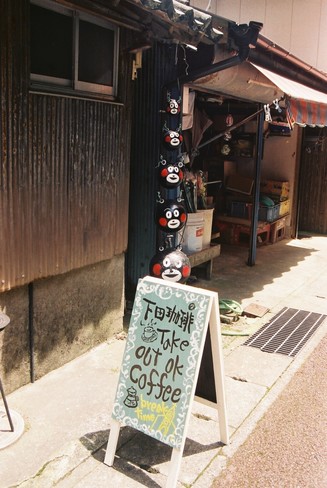 下田珈琲
Take
out ok
Coffee
break
time